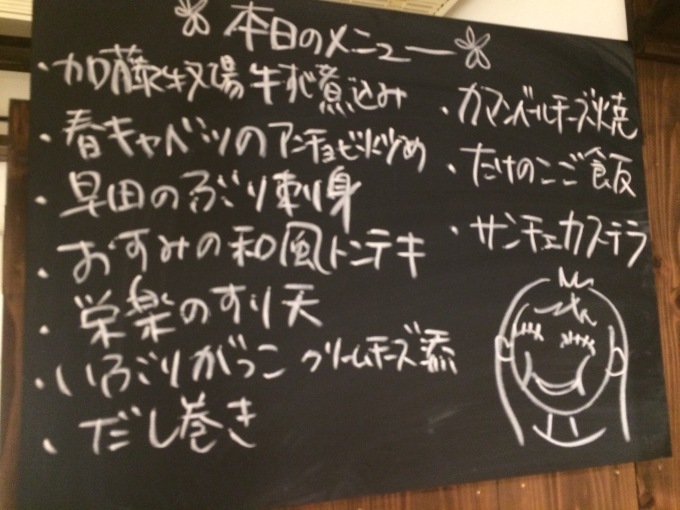 本日のメニュー
・加藤牧場牛すじ煮込み
・春キャベツのアンチョビ炒め
・早田のぶり刺身
・おすみの和風トンテキ
・栄楽のすり天
・いぶりがっこ クリームチーズ添
・だし巻き
・カマンベールチーズ焼
・たけのこご飯
・サンチェカステラ